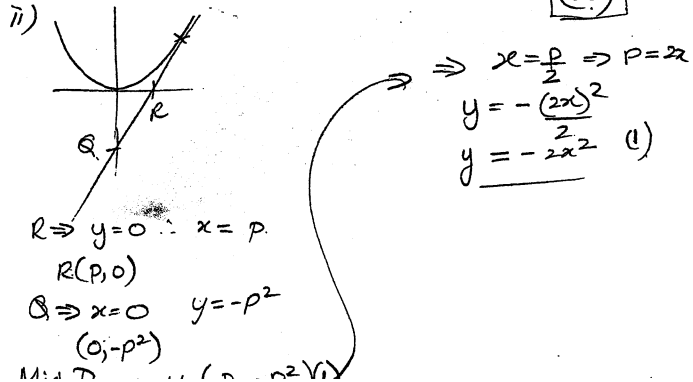 ii)
R
Q
R ⇒ y=0 ∴ x = p.
R(p,0)
Q ⇒ x=0 y=-p²
(0,-p²)
⇒ x = p/2 ⇒ p=2x
y = -(2x)²/2
y = -2x² (1)